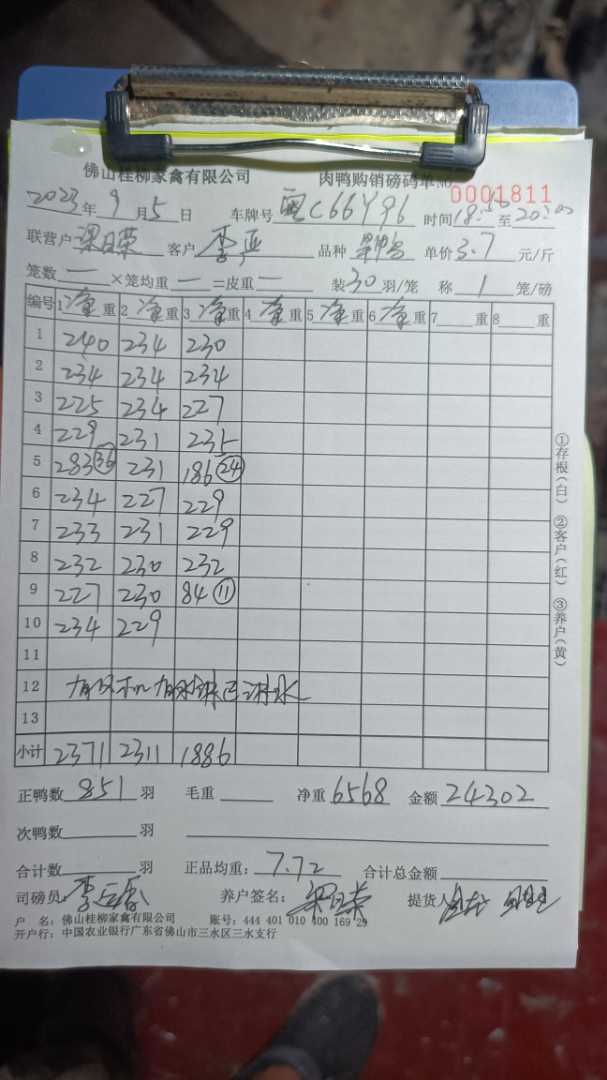 佛山桂柳家禽有限公司 肉鸭购销磅码单 0001811
2023年9月5日 车牌号 粤C66Y96 时间18:30至20:00
联营户梁日荣 客户 李 品种 单价3.7元/斤
笼数一×笼均重一=皮重一 装30羽/笼 称1笼/磅
编号 1净重 2净重 3净重 4净重 5净重 6净重 7重 8重
1 240 234 230
2 234 234 234
3 225 234 227
4 229 231 235
5 283㊱ 231 186㉔
6 234 227 229
7 233 231 229
8 232 230 232
9 227 230 84⑪
10 234 229
11
12 淋水
13
小计 2371 2311 1886
正鸭数851羽 毛重 净重6568 金额24302
次鸭数 羽
合计数 羽 正品均重:7.72 合计总金额
司磅员:李 养户签名:梁日荣 提货人
户 名:佛山桂柳家禽有限公司 账号:444 401 010 400 169 29
开户行:中国农业银行广东省佛山市三水区三水支行
①存根(白) ②客户(红) ③养户(黄)